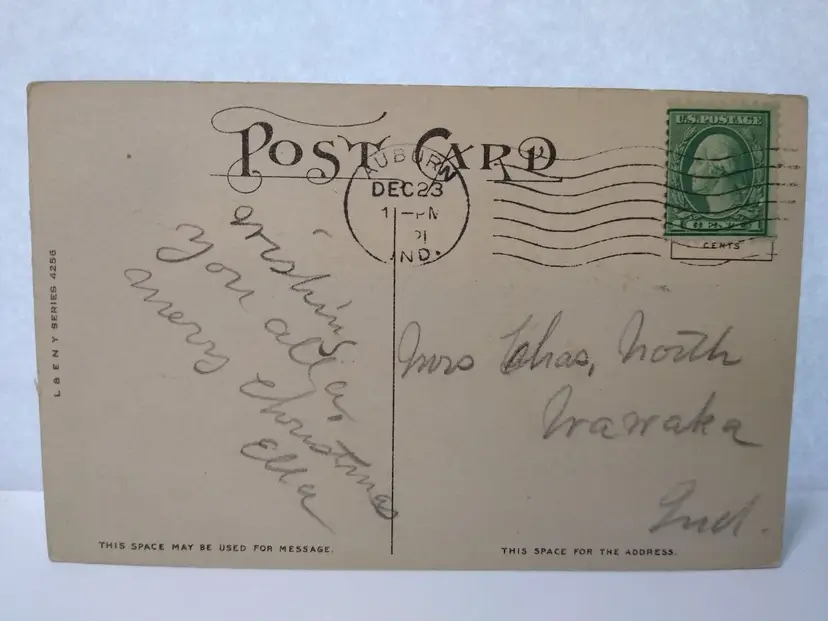 POST CARD
AUBURN
DEC 23
1-PM
IND.
U.S. POSTAGE
CENTS
wishing
you all a
merry Christmas
Ella
Mrs Chas, North
Wawaka
Ind.
L & E N Y SERIES 4256
THIS SPACE MAY BE USED FOR MESSAGE.
THIS SPACE FOR THE ADDRESS.